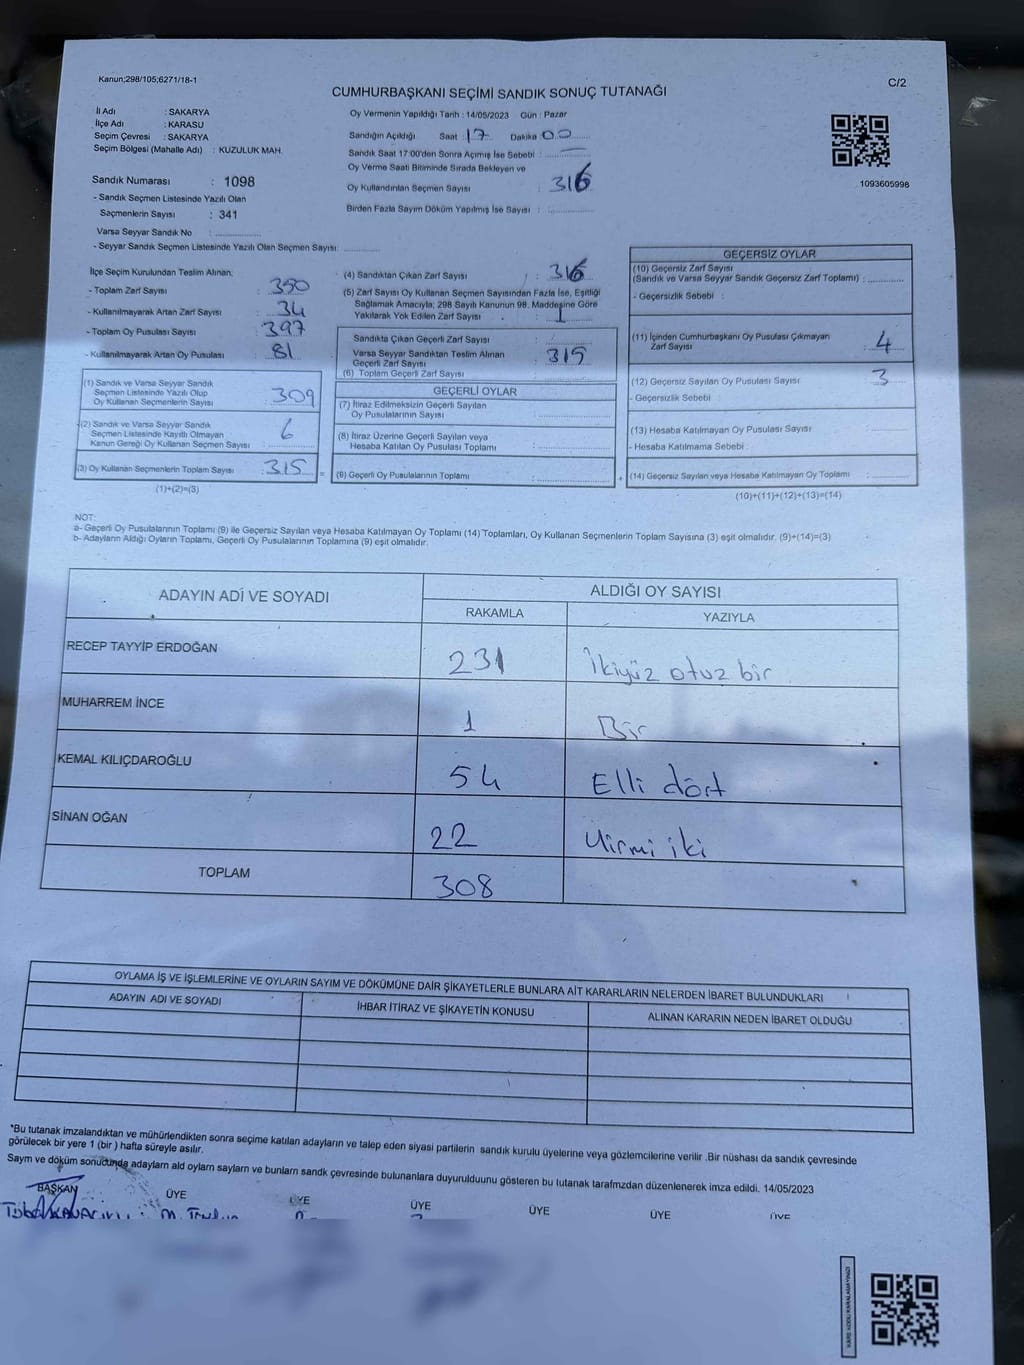 Kanun;298/105;6271/18-1
C/2
CUMHURBAŞKANI SEÇİMİ SANDIK SONUÇ TUTANAĞI
İl Adı : SAKARYA
İlçe Adı : KARASU
Seçim Çevresi : SAKARYA
Seçim Bölgesi (Mahalle Adı) : KUZULUK MAH.
Sandık Numarası : 1098
- Sandık Seçmen Listesinde Yazılı Olan
Seçmenlerin Sayısı : 341
Varsa Seyyar Sandık No :
- Seyyar Sandık Seçmen Listesinde Yazılı Olan Seçmen Sayısı
Oy Vermenin Yapıldığı Tarih : 14/05/2023 Gün : Pazar
Sandığın Açıldığı Saat : 17 Dakika 00
Sandık Saat 17:00'den Sonra Açımış İse Sebebi :
Oy Verme Saati Bitiminde Sırada Bekleyen ve
Oy Kullandırılan Seçmen Sayısı : 316
Birden Fazla Sayım Döküm Yapılmış İse Sayısı :
1093605998
İlçe Seçim Kurulundan Teslim Alınan;
- Toplam Zarf Sayısı : 350
- Kullanılmayarak Artan Zarf Sayısı : 34
- Toplam Oy Pusulası Sayısı : 397
- Kullanılmayarak Artan Oy Pusulası : 81
(1) Sandık ve Varsa Seyyar Sandık
Seçmen Listesinde Yazılı Olup
Oy Kullanan Seçmenlerin Sayısı : 309
(2) Sandık ve Varsa Seyyar
Seçmen Listesinde Kayıtlı Olmayan
Kanun Gereği Oy Kullanan Seçmen Sayısı : 6
(3) Oy Kullanan Seçmenlerin Toplam Sayısı : 315
(1)+(2)=(3)
(4) Sandıktan Çıkan Zarf Sayısı : 316
(5) Zarf Sayısı Oy Kullanan Seçmen Sayısından Fazla İse, Eşitliği
Sağlamak Amacıyla; 298 Sayılı Kanunun 98. Maddesine Göre
Yakılarak Yok Edilen Zarf Sayısı : 1
Sandıkta Çıkan Geçerli Zarf Sayısı :
Varsa Seyyar Sandıktan Teslim Alınan
Geçerli Zarf Sayısı 315
(6) Toplam Geçerli Zarf Sayısı
GEÇERLİ OYLAR
(7) İtiraz Edilmeksizin Geçerli Sayılan
Oy Pusulalarının Sayısı :
(8) İtiraz Üzerine Geçerli Sayılan veya
Hesaba Katılan Oy Pusulası Toplamı :
(9) Geçerli Oy Pusulalarının Toplamı :
GEÇERSİZ OYLAR
(10) Geçersiz Zarf Sayısı
(Sandık ve Varsa Seyyar Sandık Geçersiz Zarf Toplamı) :
- Geçersizlik Sebebi :
(11) İçinden Cumhurbaşkanı Oy Pusulası Çıkmayan
Zarf Sayısı : 4
(12) Geçersiz Sayılan Oy Pusulası Sayısı : 3
- Geçersizlik Sebebi :
(13) Hesaba Katılmayan Oy Pusulası Sayısı :
- Hesaba Katılmama Sebebi :
(14) Geçersiz Sayılan veya Hesaba Katılmayan Oy Toplamı :
(10)+(11)+(12)+(13)=(14)
NOT:
a- Geçerli Oy Pusulalarının Toplamı (9) ile Geçersiz Sayılan veya Hesaba Katılmayan Oy Toplamı (14) Toplamları, Oy Kullanan Seçmenlerin Toplam Sayısına (3) eşit olmalıdır. (9)+(14)=(3)
b- Adayların Aldığı Oyların Toplamı, Geçerli Oy Pusulalarının Toplamına (9) eşit olmalıdır.
ADAYIN ADI VE SOYADI
ALDIĞI OY SAYISI
RAKAMLA YAZIYLA
RECEP TAYYİP ERDOĞAN 231 İkiyüz otuz bir
MUHARREM İNCE 1 Bir
KEMAL KILIÇDAROĞLU 54 Elli dört
SİNAN OĞAN 22 Yirmi iki
TOPLAM 308
OYLAMA İŞ VE İŞLEMLERİNE VE OYLARIN SAYIM VE DÖKÜMÜNE DAİR ŞİKAYETLERLE BUNLARA AİT KARARLARIN NELERDEN İBARET BULUNDUKLARI
ADAYIN ADI VE SOYADI İHBAR İTİRAZ VE ŞİKAYETİN KONUSU ALINAN KARARIN NEDEN İBARET OLDUĞU
*Bu tutanak imzalandıktan ve mühürlendikten sonra seçime katılan adayların ve talep eden siyasi partilerin sandık kurulu üyelerine veya gözlemcilerine verilir .Bir nüshası da sandık çevresinde
görülecek bir yere 1 (bir ) hafta süreyle asılır.
Sayım ve döküm sonucunda adayların ald oyların sayları ve bunların sandk çevresinde bulunanlara duyurulduunu gösteren bu tutanak tarafmzdan düzenlenerek imza edildi. 14/05/2023
BAŞKAN ÜYE ÜYE ÜYE ÜYE ÜYE ÜYE